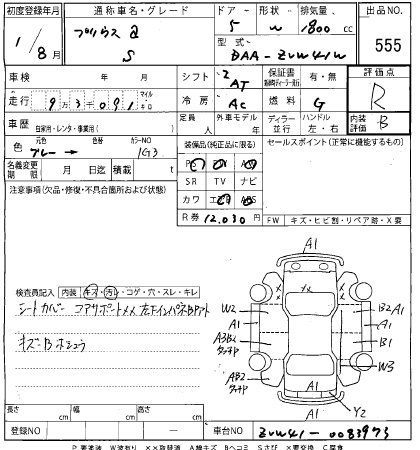 初度登録年月 通称車名・グレード ドア 形状 排気量 出品No.
1/8月 プリウス α 5 W 1800cc 555
S 型式 DAA-ZVW41W
車検 年 月 シフト AT 保証書 有・無 評価点
走行 9万3091 マイル キロ 冷房 AC 燃料 G R
車歴 自家用・レンタ・事業用( ) 定員 人 外車モデル 年 ディーラー 並行 ハンドル 左・右 内装評価 B
色 元色 グレー → 色替 カラーNo 1G3 装備品(純正品に限る) セールスポイント(正常に機能するもの)
名義変更期限 月 日迄 積載 t SR TV ナビ
注意事項(欠品・修復・不具合箇所および状態) カワ
R券 12,030 円 FW キズ・ヒビ割・リペア跡・X要
検査員記入 内装 キズ・汚レ・コゲ・穴・スレ・キレ
シートカバー コアサポートメメ
キズ・Bホシュウ
A1
W2 B2A1
A1 A1
A3B2 B1
タッチP W3
AB2
タッチP
Y2
A1
長さ cm 幅 cm 高さ cm
登録No. 車台No. ZVW41-0083973
P要塗装 W波有り XX取替済 A線キズ Bヘコミ Sさび X要交換 C腐食